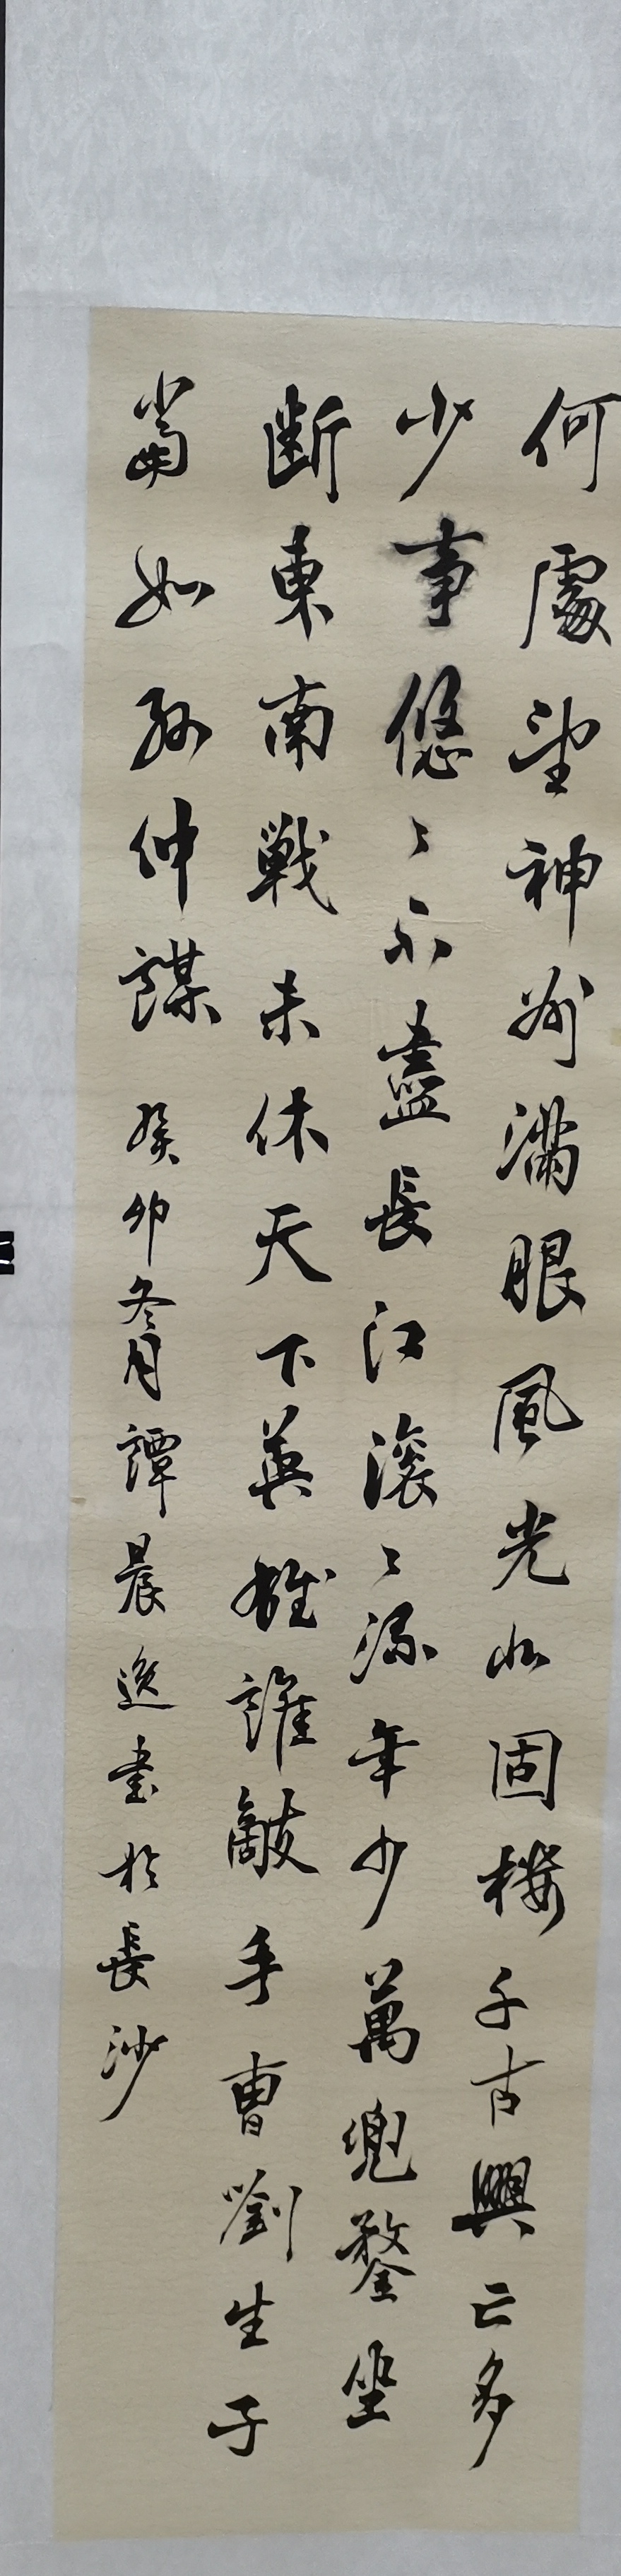 何處望神州滿眼風光北固樓千古興亡多
少事悠〻不盡長江滾〻流年少萬兜鍪坐
斷東南戰未休天下英雄誰敵手曹劉生子
當如孫仲謀 癸卯冬月譚晨逸書於長沙